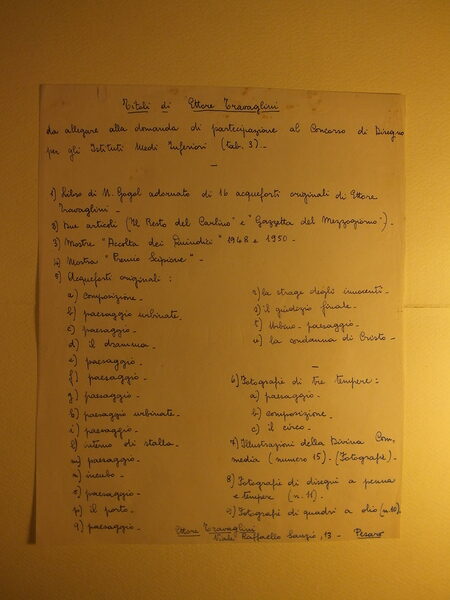 Titoli di Ettore Travaglini
da allegare alla domanda di partecipazione al Concorso di Disegno
per gli Istituti Medi Inferiori (tab. 3). -
1) Libro di N. Gogol adornato di 16 acqueforti originali di Ettore
Travaglini -
2) Due articoli ("Il Resto del Carlino" e "Gazzetta del Mezzogiorno"). -
3) Mostre "Accolta dei Quindici" 1948 e 1950 -
4) Mostra "Premio Scipione" -
5) Acqueforti originali :
a) composizione -
b) paesaggio urbinate
c) paesaggio -
d) il dramma -
e) paesaggio -
f) paesaggio -
g) paesaggio -
h) paesaggio urbinate -
i) paesaggio -
l) interno di stalla -
m) paesaggio -
n) incubo -
o) paesaggio -
p) il porto -
q) paesaggio -
r) la strage degli innocenti -
s) il giudizio finale -
t) Urbino - paesaggio -
u) la condanna di Cristo -
6) Fotografie di tre tempere :
a) paesaggio -
b) composizione -
c) il circo -
7) Illustrazioni della Divina Com_
media (numero 15). (Fotografie) -
8) Fotografie di disegni a penna
e tempere (n. 11). -
9) Fotografie di quadri a olio (n. 10).
Ettore Travaglini
Viale Raffaello Sanzio, 13 - Pesaro